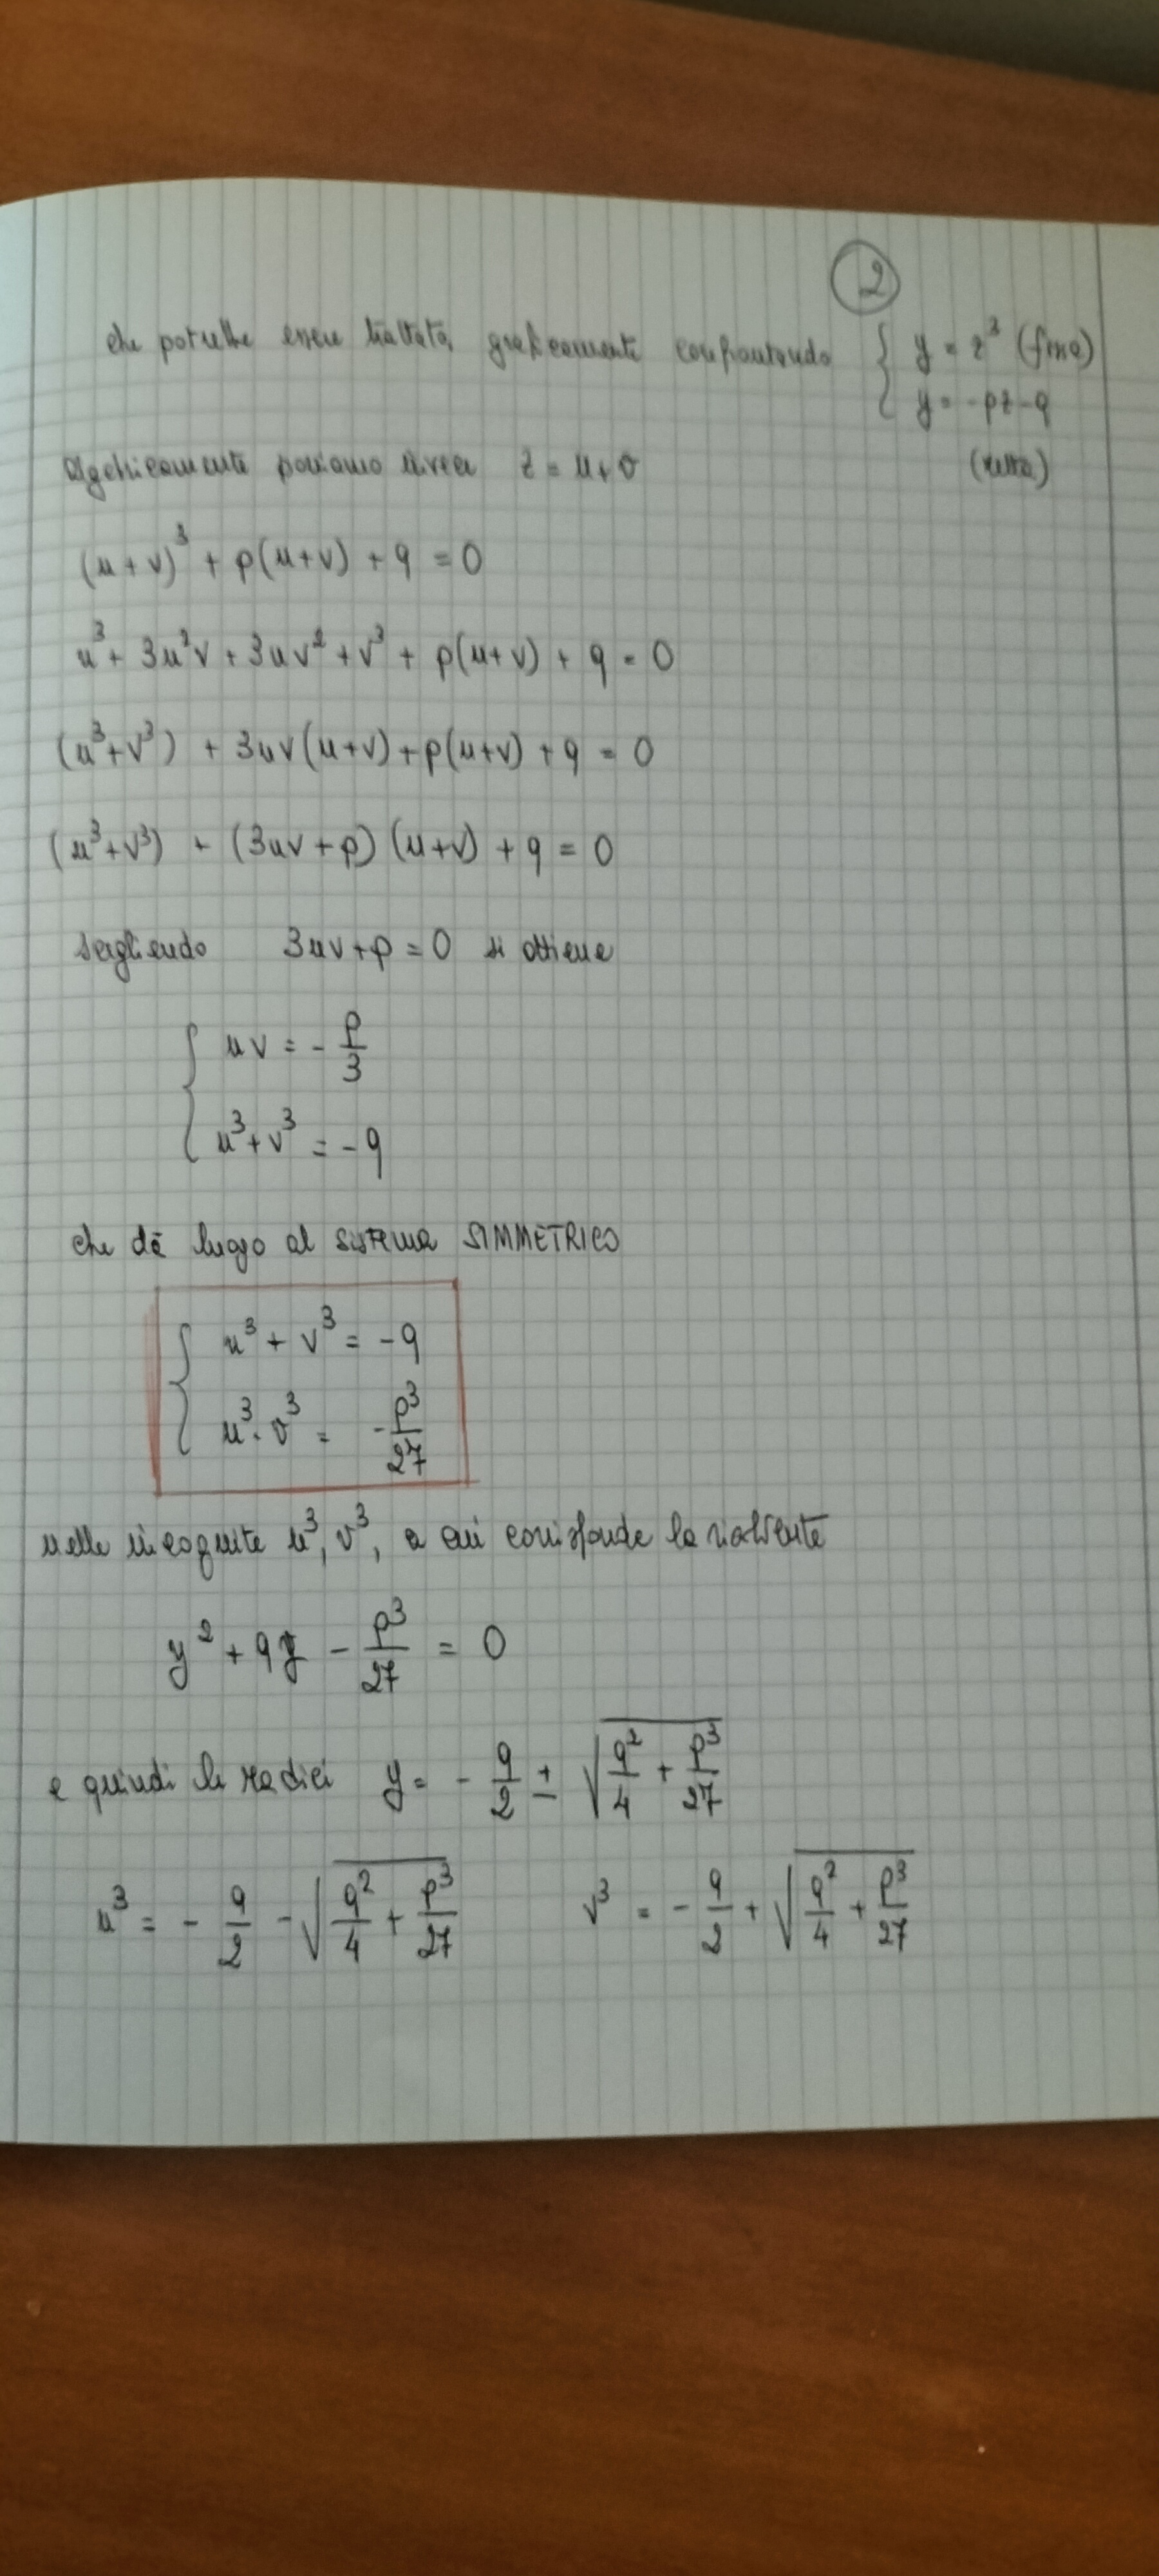 2
che potrebbe essere trattata graficamente confrontando { y = z³ (fissa)
y = -pz-q
algebricamente poniamo invece z = u+v (retta)
(u+v)³ + p(u+v) + q = 0
u³ + 3u²v + 3uv² + v³ + p(u+v) + q = 0
(u³+v³) + 3uv(u+v) + p(u+v) + q = 0
(u³+v³) + (3uv+p)(u+v) + q = 0
scegliendo 3uv+p = 0 si ottiene
{ uv = -p/3
u³+v³ = -q
che dà luogo al sistema SIMMETRICO
{ u³ + v³ = -q
u³·v³ = -p³/27
nelle incognite u³, v³, a cui corrisponde la risolvente
y² + qy - p³/27 = 0
e quindi le radici y = -q/2 ± √(q²/4 + p³/27)
u³ = -q/2 - √(q²/4 + p³/27) v³ = -q/2 + √(q²/4 + p³/27)